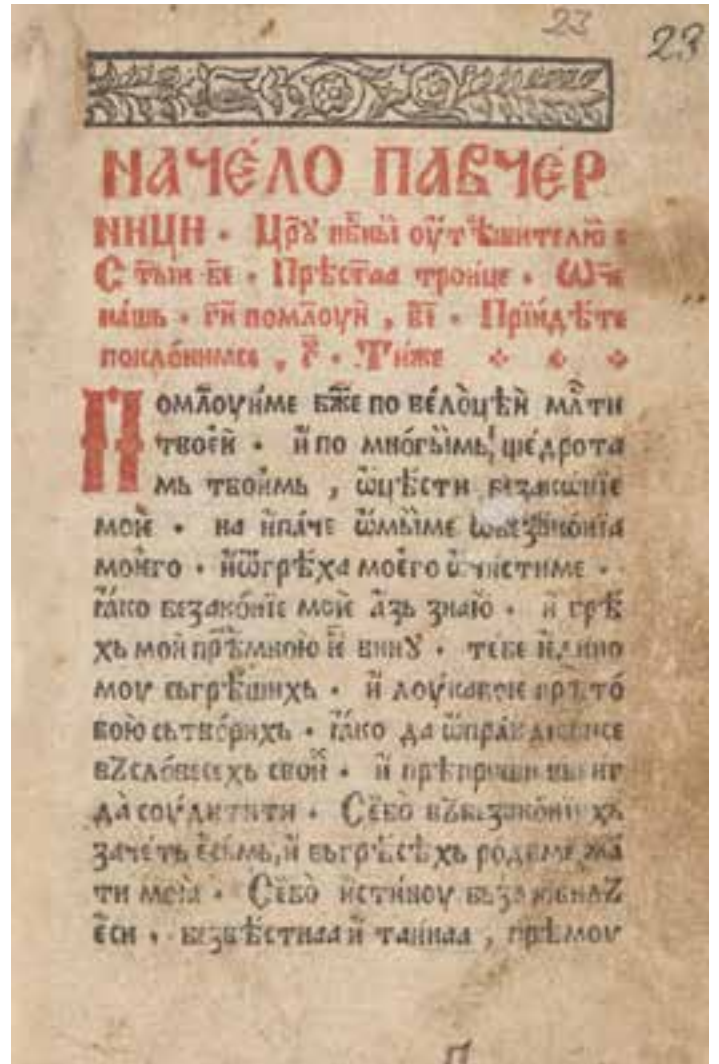 23 23
НАЧЕ́ЛО ПАВЧЕР
НИЦИ · Цр҃ꙋ нбⷭ҇ныи оу҆тѣшителю
С҃тыи бе · Прѣст҃аа троице · Ѡч҃е
на́шь · гй помл҃оуй , в҃і · Прїидѣ́те
покло́нимсе , г҃ · Тиже
Помл҃оуйме бж҃е по ве́лоцѣй мл҃ти
твоей · й по мно́гыимь ще́дрота
мь твои́мь , ѡ҆цѣсти безако́нїе
мое · на йпа́че ѡ҆мыиме ѿбезако́нїа
моего · йѿгрѣха моего ѡ҆чистиме ·
ꙗко безако́нїе мое а҆зь знаю · й грѣ
хь мой прѣмною й вину · тебе йдино
моу сьгрѣшихь · й лоукавое прѣто́
бою сьтво́рихь · ꙗко да ѡ҆правдисисе
вꙁсло́весехь свои · й прѣприши вьниг
да̀ соудитити · Се́бо вꙁбезако́нихь
заче́ть е҆сьмь, й вьгрѣсѣхь родиме ма
ти моꙗ · Се́бо йсти́ноу вьзлюбилꙁ
е҆си · безвѣстнаа й таинаа , прѣмоу
П